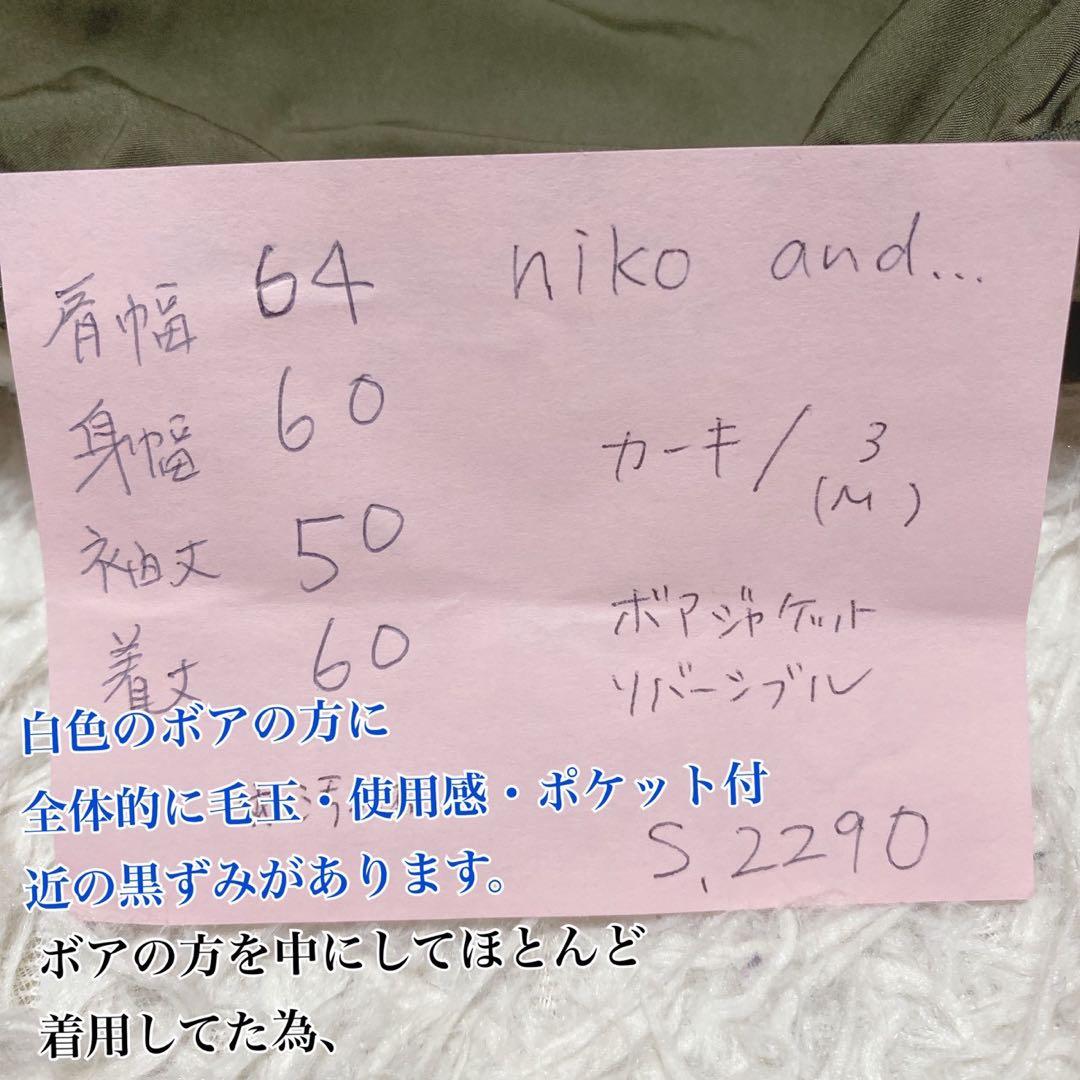 niko and...
肩幅 64
身幅 60
袖丈 50
着丈 60
カーキ / 3
(M)
ボアジャケット
リバーシブル
S.2290
白色のボアの方に
全体的に毛玉・使用感・ポケット付
近の黒ずみがあります。
ボアの方を中にしてほとんど
着用してた為、